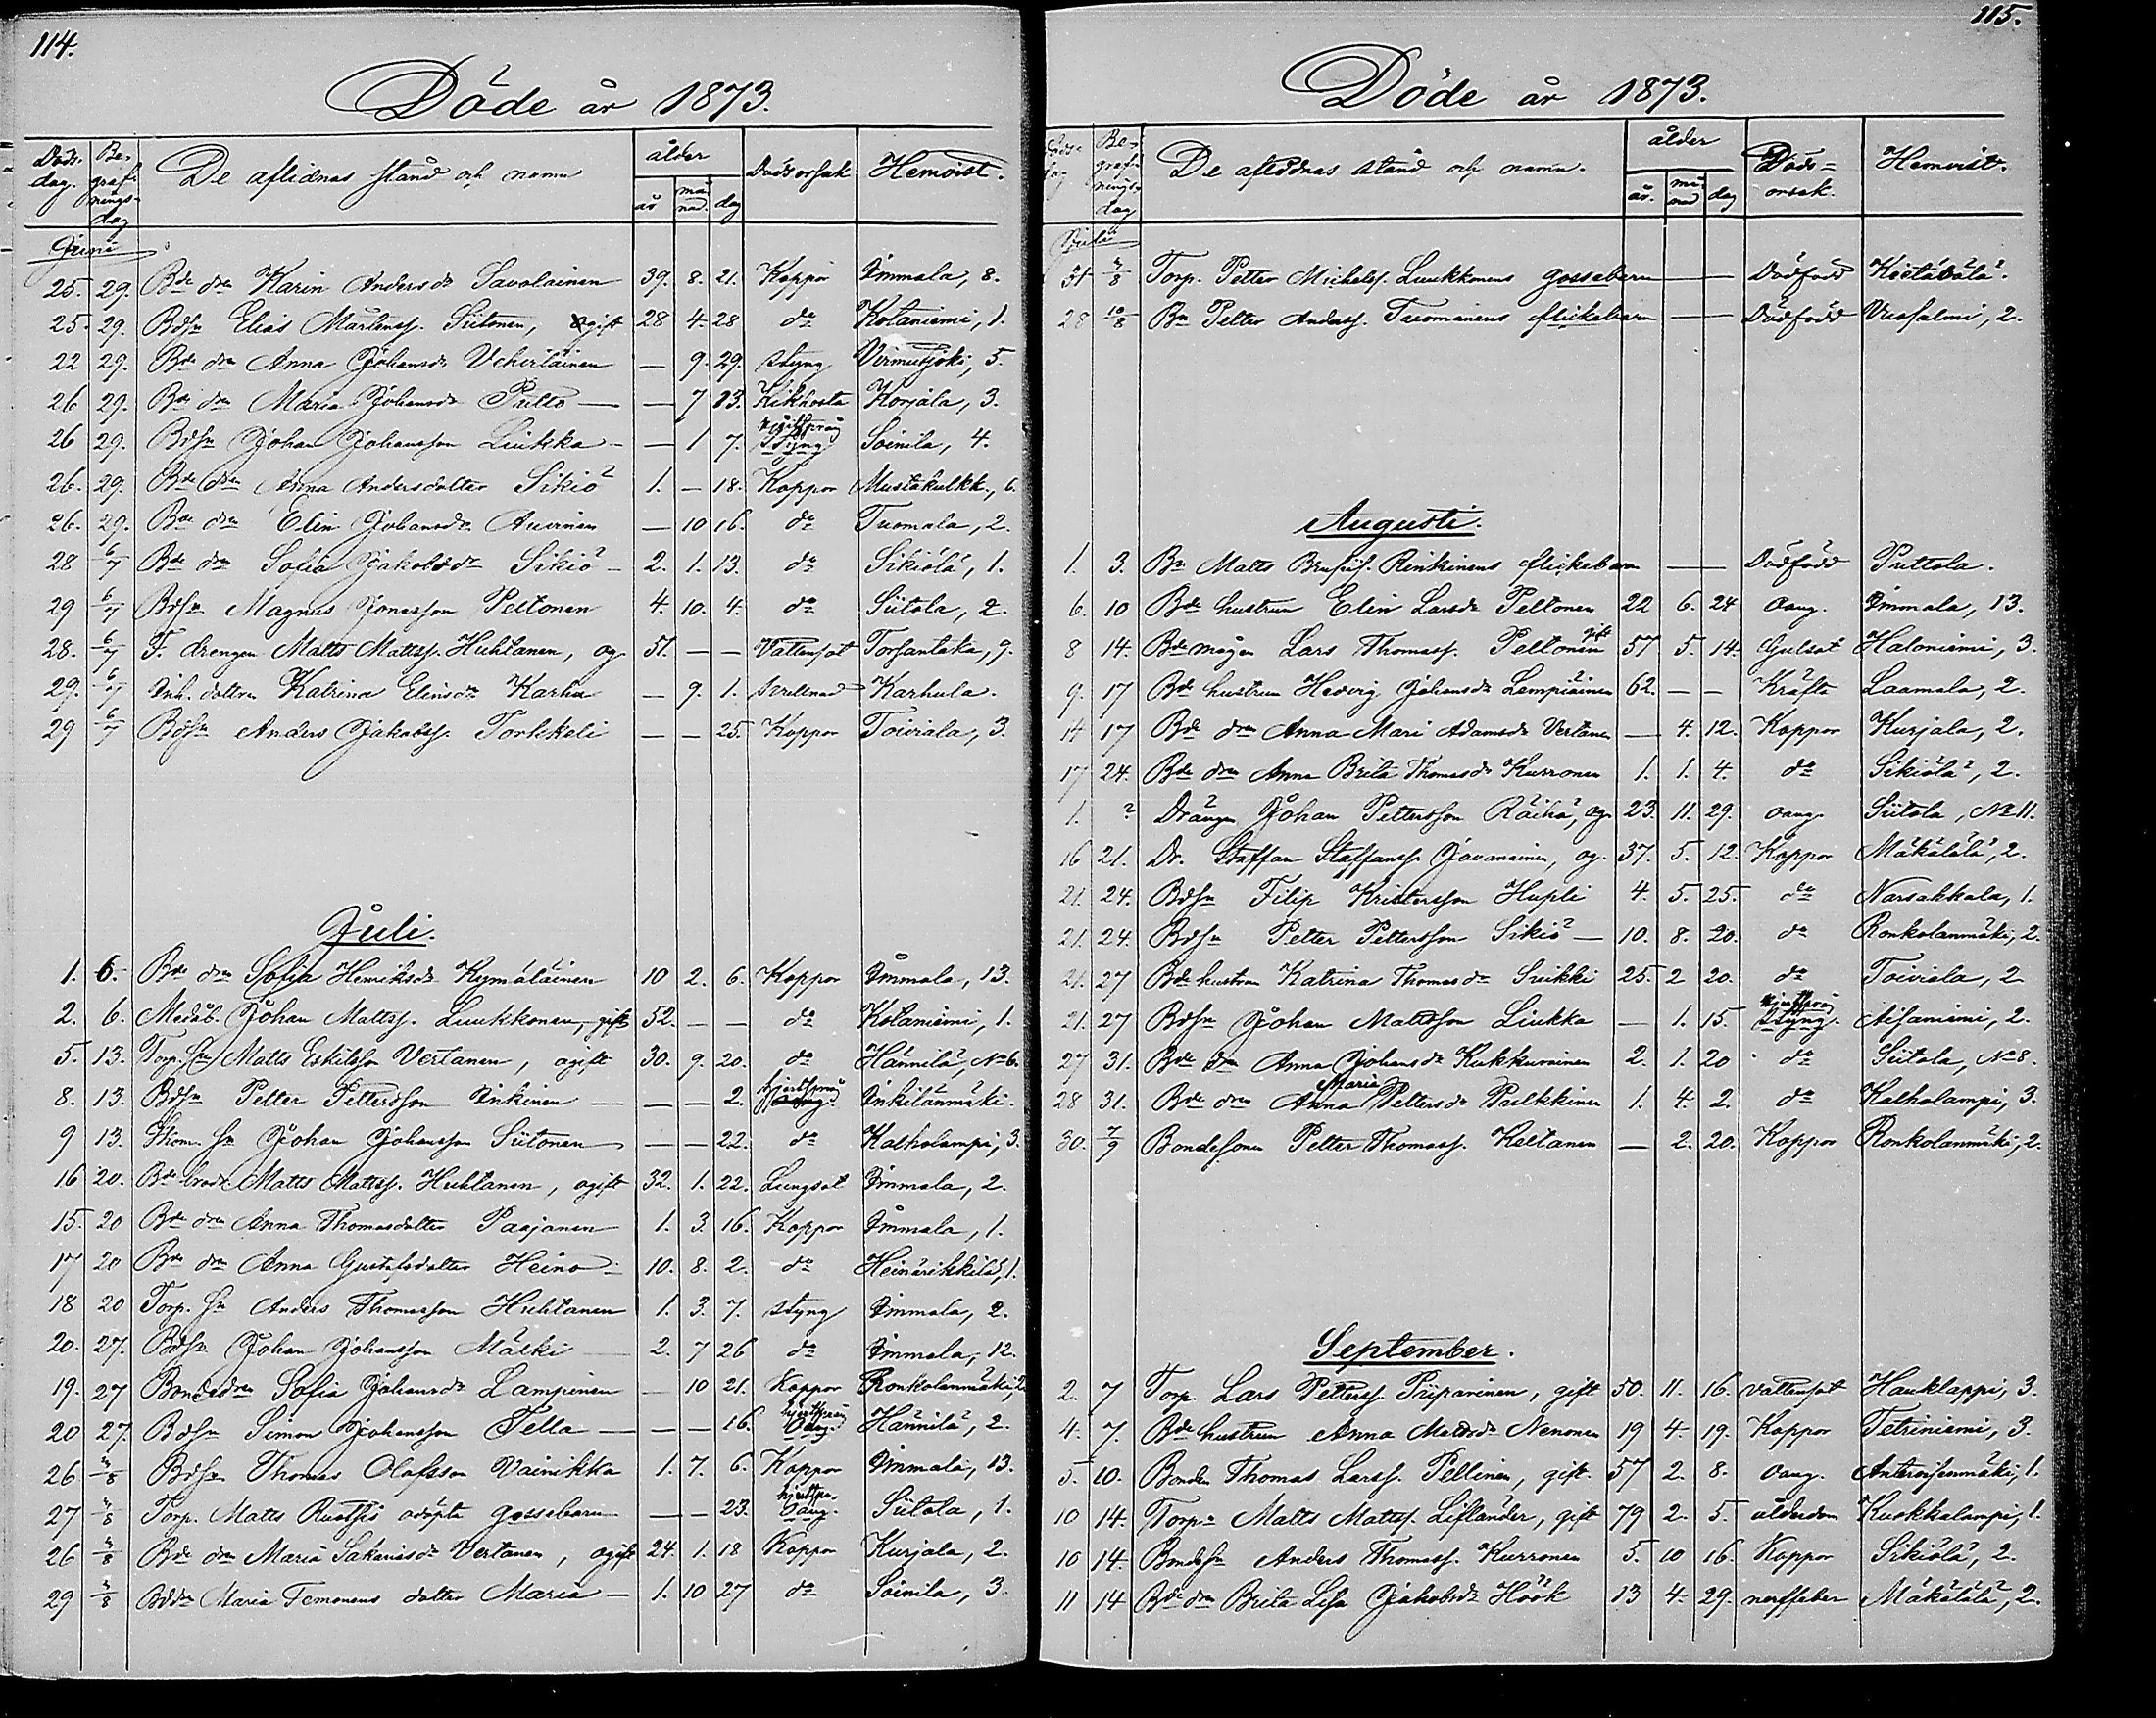 114.
Döde år 1873.
Döds-dag. Begrafningsdag De aflidnas stånd och namn ålder år månad. dag Dödsorsak Hemvist.
Juni
25. 29. Bde dr Karin Andersdr Savolainen 39. 8. 21. Koppor Immala, 8.
25. 29. Bdsn Elias Mårtenss. Siitonen, ogift 28 4. 28 do Kotaniemi, 1.
22 29. Bde dr Anna Johansdr Ucherläinen — 9. 29. styng Virmutjoki, 5.
26 29. Bde dr Maria Johansdr Pulto — — 7 13. Kikhosta Korjala, 3.
26 29. Bdsn Johan Johansson Liukka — — 1 7. styng Soinila, 4.
26. 29. Bde dr Anna Andersdotter Sikiö 1. — 18. Koppor Mustakulkk., 6.
26. 29. Bde dr Elin Johansdr Auvinen — 10 16. do Tuomala, 2.
28 6/7 Bde dr Sofia Jakobsdr Sikiö — 2. 1. 13. do Sikiölä, 1.
29 6/7 Bdsn Magnus Jonasson Peltonen 4. 10. 4. do Siitola, 2.
28. 6/7 F. drengen Matts Mattss. Huhtanen, og. 51. — — Vattensot Torsantaka, 9.
29. 6/7 Inh. dottren Katrina Eliasdr Karhu — 9. 1. Karhula.
29 6/7 Bdsn Anders Jakobss. Torkkeli — — 25. Koppor Toiviala, 3.
Juli.
1. 6. Bde dr Sofia Henriksdr Kymäläinen 10 2. 6. Koppor Immala, 13.
2. 6. Medåb. Johan Mattss. Luukkonen, gift 52. — — do Kotaniemi, 1.
5. 13. Torp. sn Matts Eskilsson Vertanen, ogift 30. 9. 20. do Hännilä, No 6.
8. 13. Bdsn Petter Pettersson Inkinen — — — 2. Inkilänmäki.
9 13. Thom. sn Johan Johansson Siitonen — — 22. do Kalholampi, 3.
16 20. Bde brodr Matts Mattss. Huhtanen, ogift 32. 1. 22. Lungsot Immala, 2.
15. 20 Bde dr Anna Thomasdotter Paajanen 1. 3. 16. Koppor Immala, 1.
17 20 Bde dr Anna Gustafsdotter Heino — 10. 8. 2. do Heinärikkilä, 1.
18 20 Torp. sn Anders Thomasson Huhtanen 1. 3. 7. styng Immala, 2.
20. 27. Bdsn Johan Johansson Mälki — 2. 7 26 do Immala, 12.
19. 27 Bondedr Sofia Johansdr Lampinen — 10 21. Koppor Ronkolanmäki, 2
20 27. Bdsn Simon Johansson Tella — — — 16. Hännilä, 2.
26 3/8 Bdsn Thomas Olofsson Vainikka 1. 7. 6. Koppor Immala, 13.
27 3/8 Torp. Matts odöpta gossebarn — — 23. Siitola, 1.
26 3/8 Bde dr Maria Sakariasdr Vertanen, ogift 24. 1. 18 Koppor Kurjala, 2.
29 3/8 Bddr Maria Temonens dotter Maria — 1. 10 27 do Soinila, 3.
115.
Döde år 1873.
Dödsdag Begrafningsdag De aflidnas stånd och namn. ålder år. månad dag Döds-orsak. Hemvist.
Juli
31 3/8 Torp. Petter Michelss. Luukkonens gossebarn — — Dödfödd Kietävälä.
28 10/8 Bn Petter Anderss. Tuomanens flickebarn — — Dödfödd Vuosalmi, 2.
Augusti.
1. 3. Bn Matts Rinkinens flickebarn — — Dödfödd Puttola.
6. 10 Bde hustrun Elin Larsdr Peltonen 22 6. 24 Oang. Immala, 13.
8 14. Bde mågen Lars Thomass. Peltonen gift 57 5. 14. Gulsot Haloniemi, 3.
9. 17 Bde hustrun Hedvig Johansdr Lempiäinen 62. — — Kräfta Laamala, 2.
14 17 Bde dr Anna Mari Adamsdr Vertanen — 4. 12. Koppor Kurjala, 2.
17 24. Bde dr Anna Brita Thomasdr Kurronen 1. 1. 4. do Sikiölä, 2.
1. ? Drängen Johan Pettersson Räihä, og. 23. 11. 29. oang. Siitola, No 11.
16 21. Dr. Staffan Staffanss. Javanainen, og. 37. 5. 12. Koppor Mäkälälä, 2.
21. 24. Bdsn Filip Kristersson Hupli 4. 5. 25. do Narsakkala, 1.
21. 24. Bdsn Petter Pettersson Sikiö — 10. 8. 20. do Ronkolanmäki, 2.
21. 27 Bde hustrun Katrina Thomasdr Suikki 25. 2 20. do Toiviala, 2
21. 27 Bdsn Johan Mattsson Liukka — 1. 15. styng. Aisaniemi, 2.
27 31. Bde dr Anna Johansdr Kukkurainen 2. 1. 20 do Siitola, No 8.
28 31. Bde dr Anna Maria Pettersdr Pulkkinen 1. 4. 2. do Kalholampi, 3.
30. 7/9 Bondesonen Petter Thomass. Keltanen — 2. 20. Koppor Ronkolanmäki, 2.
September.
2. 7 Torp. Lars Petterss. Piiparinen, gift 50. 11. 16. vattensot Hauklappi, 3.
4. 7. Bde hustrun Anna Mattsdr Nenonen 19 4. 19. Koppor Tetriniemi, 3.
5. 10. Bonden Thomas Larss. Pellinen, gift 57 2. 8. oang. Anteroisenmäki, 1.
10 14. Torpn Matts Mattss. Lifländer, gift 79 2. 5. ålderdom Kuokkalampi, 1.
10 14. Bondesn Anders Thomass. Kurronen 5. 10 16. Koppor Sikiölä, 2.
11 14 Bde dr Brita Lisa Jakobsdr Höök 13 4. 29. nerffeber Mäkälälä, 2.